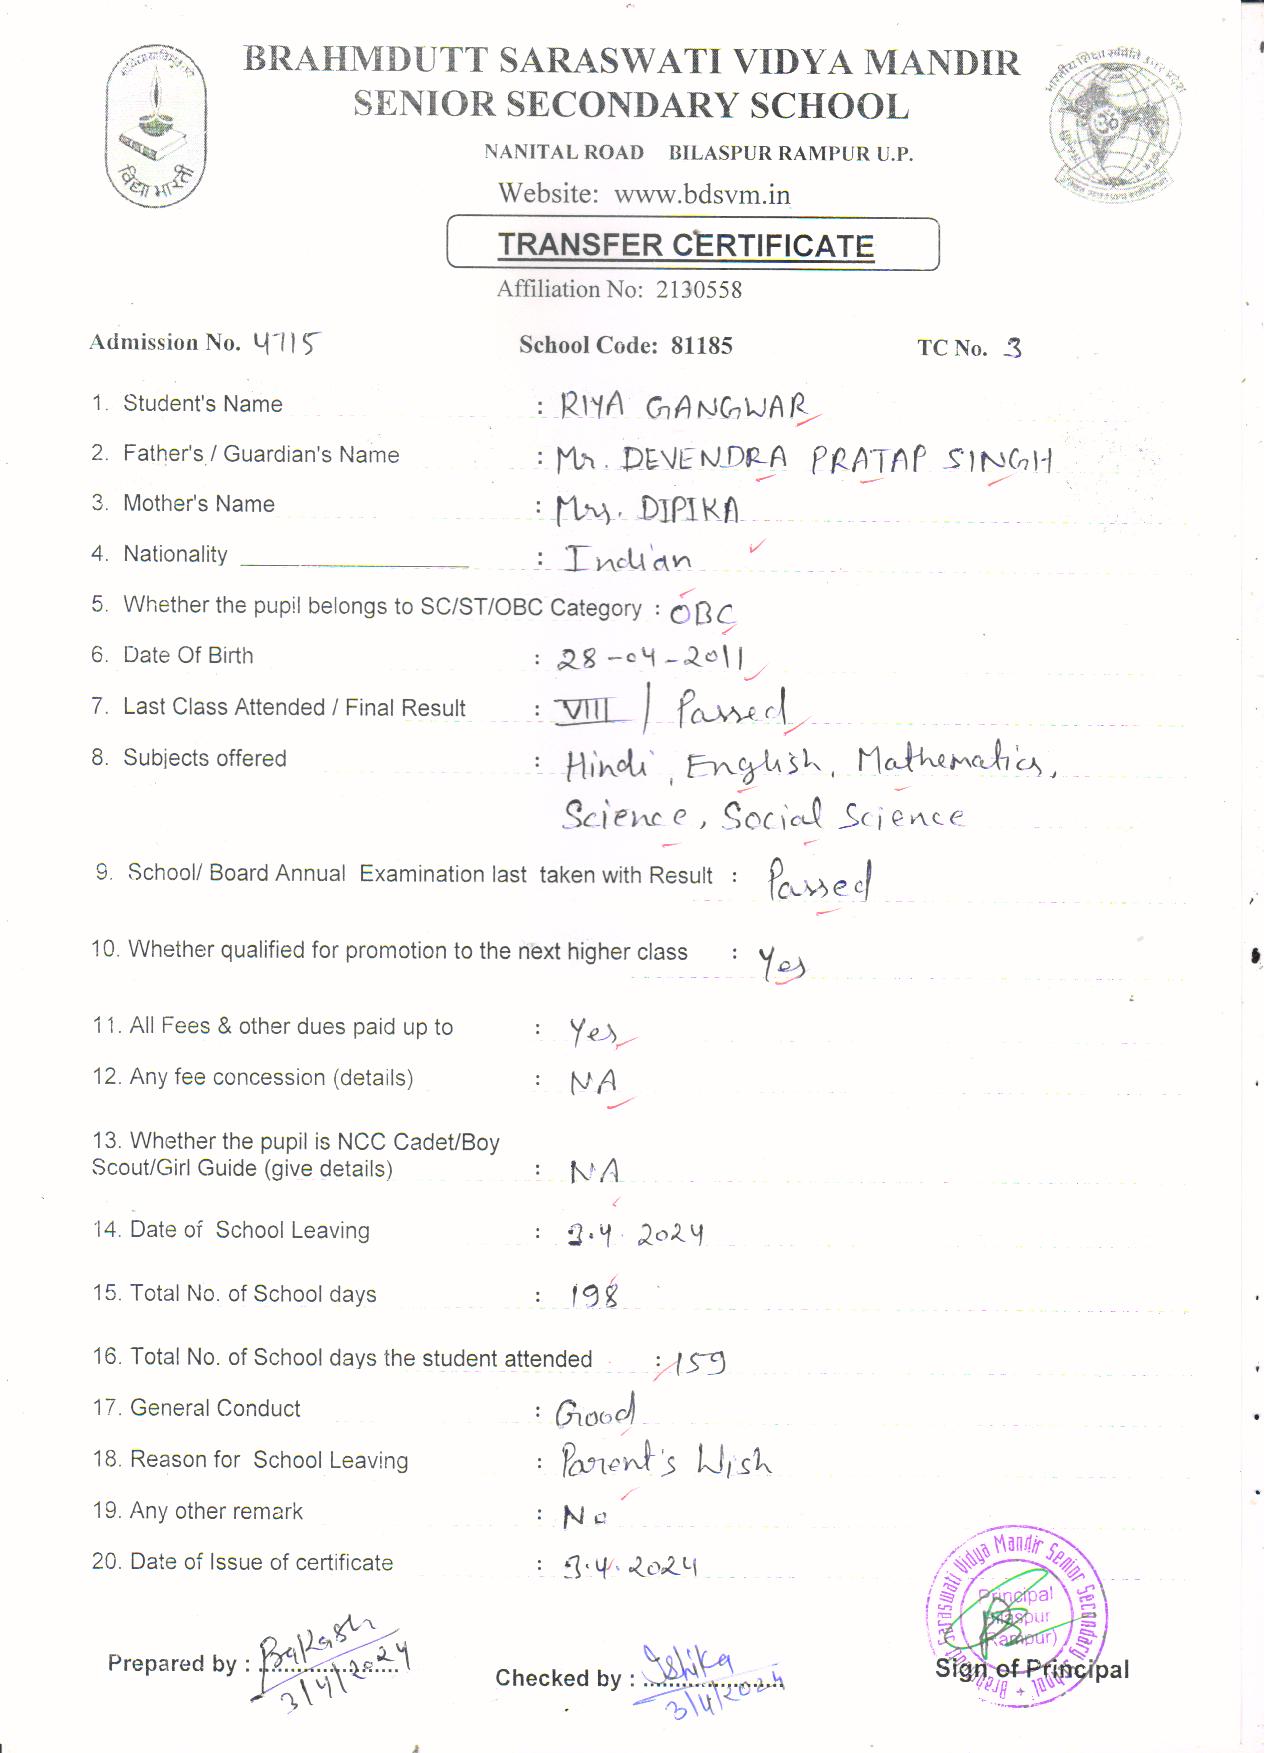 BRAHMDUTT SARASWATI VIDYA MANDIR
SENIOR SECONDARY SCHOOL
विद्या भारती
NANITAL ROAD BILASPUR RAMPUR U.P.
Website: www.bdsvm.in
TRANSFER CERTIFICATE
Affiliation No: 2130558
Admission No. 4715 School Code: 81185 TC No. 3
1. Student's Name : RIYA GANGWAR
2. Father's / Guardian's Name : Mr. DEVENDRA PRATAP SINGH
3. Mother's Name : Mrs. DIPIKA
4. Nationality : Indian
5. Whether the pupil belongs to SC/ST/OBC Category : OBC
6. Date Of Birth : 28-04-2011
7. Last Class Attended / Final Result : VIII / Passed
8. Subjects offered : Hindi, English, Mathematics,
Science, Social Science
9. School/ Board Annual Examination last taken with Result : Passed
10. Whether qualified for promotion to the next higher class : Yes
11. All Fees & other dues paid up to : Yes
12. Any fee concession (details) : NA
13. Whether the pupil is NCC Cadet/Boy
Scout/Girl Guide (give details) : NA
14. Date of School Leaving : 3.4.2024
15. Total No. of School days : 198
16. Total No. of School days the student attended : 159
17. General Conduct : Good
18. Reason for School Leaving : Parent's Wish
19. Any other remark : No
20. Date of Issue of certificate : 3.4.2024
Saraswati Vidya Mandir Senior Secondary School
Principal
Bilaspur
(Rampur)
Prepared by :
3/4/2024
Checked by : Ishika
3/4/2024
Sign of Principal